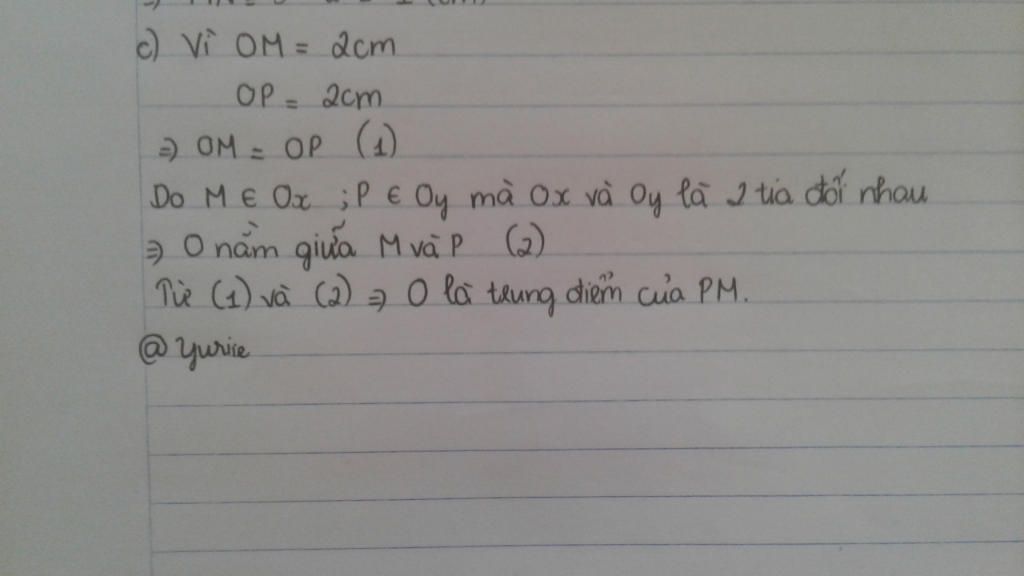 c) Vì OM = 2cm
OP = 2cm
⇒ OM = OP (1)
Do M ∈ Ox ; P ∈ Oy mà Ox và Oy là 2 tia đối nhau
⇒ O nằm giữa M và P (2)
Từ (1) và (2) ⇒ O là trung điểm của PM.
@ Yuriie